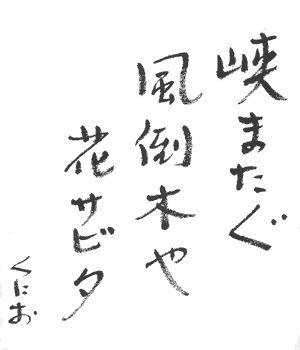 峡またぐ
風倒木や
花サビタ
くにお